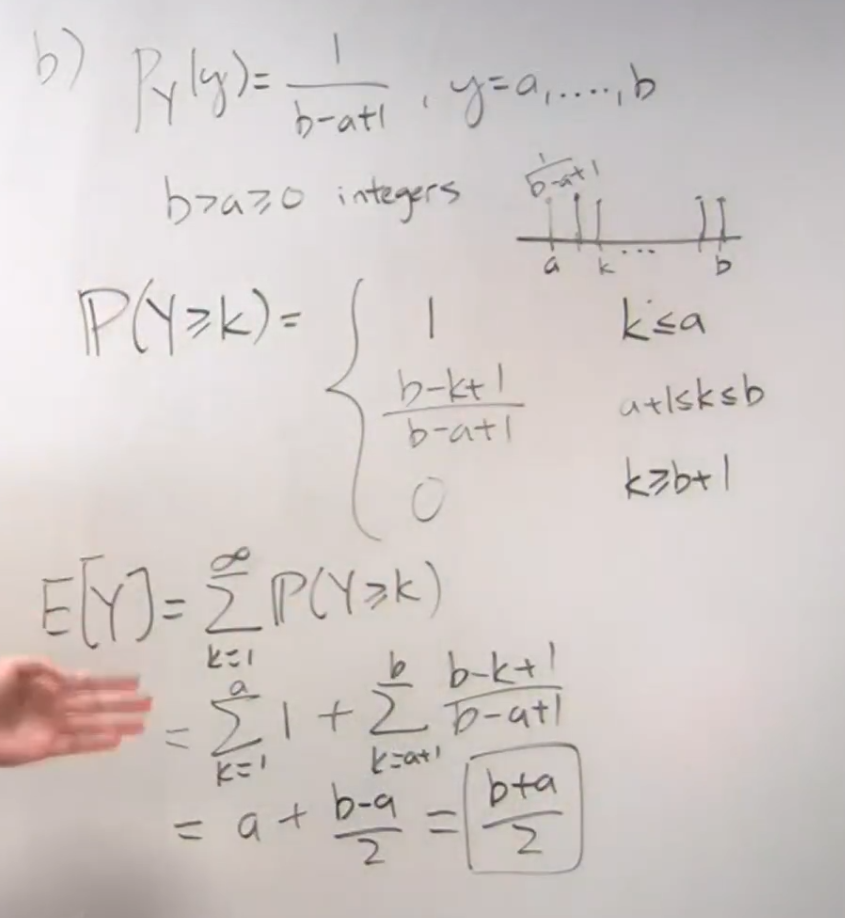 b) P_Y(y) = 1/(b-a+1), y=a,....,b
b>a≥0 integers
1/(b-a+1)
a k ... b
ℙ(Y≥k) = { 1 k≤a
(b-k+1)/(b-a+1) a+1≤k≤b
0 k≥b+1
E[Y] = ∑_{k=1}^{∞} ℙ(Y≥k)
= ∑_{k=1}^{a} 1 + ∑_{k=a+1}^{b} (b-k+1)/(b-a+1)
= a + (b-a)/2 = (b+a)/2